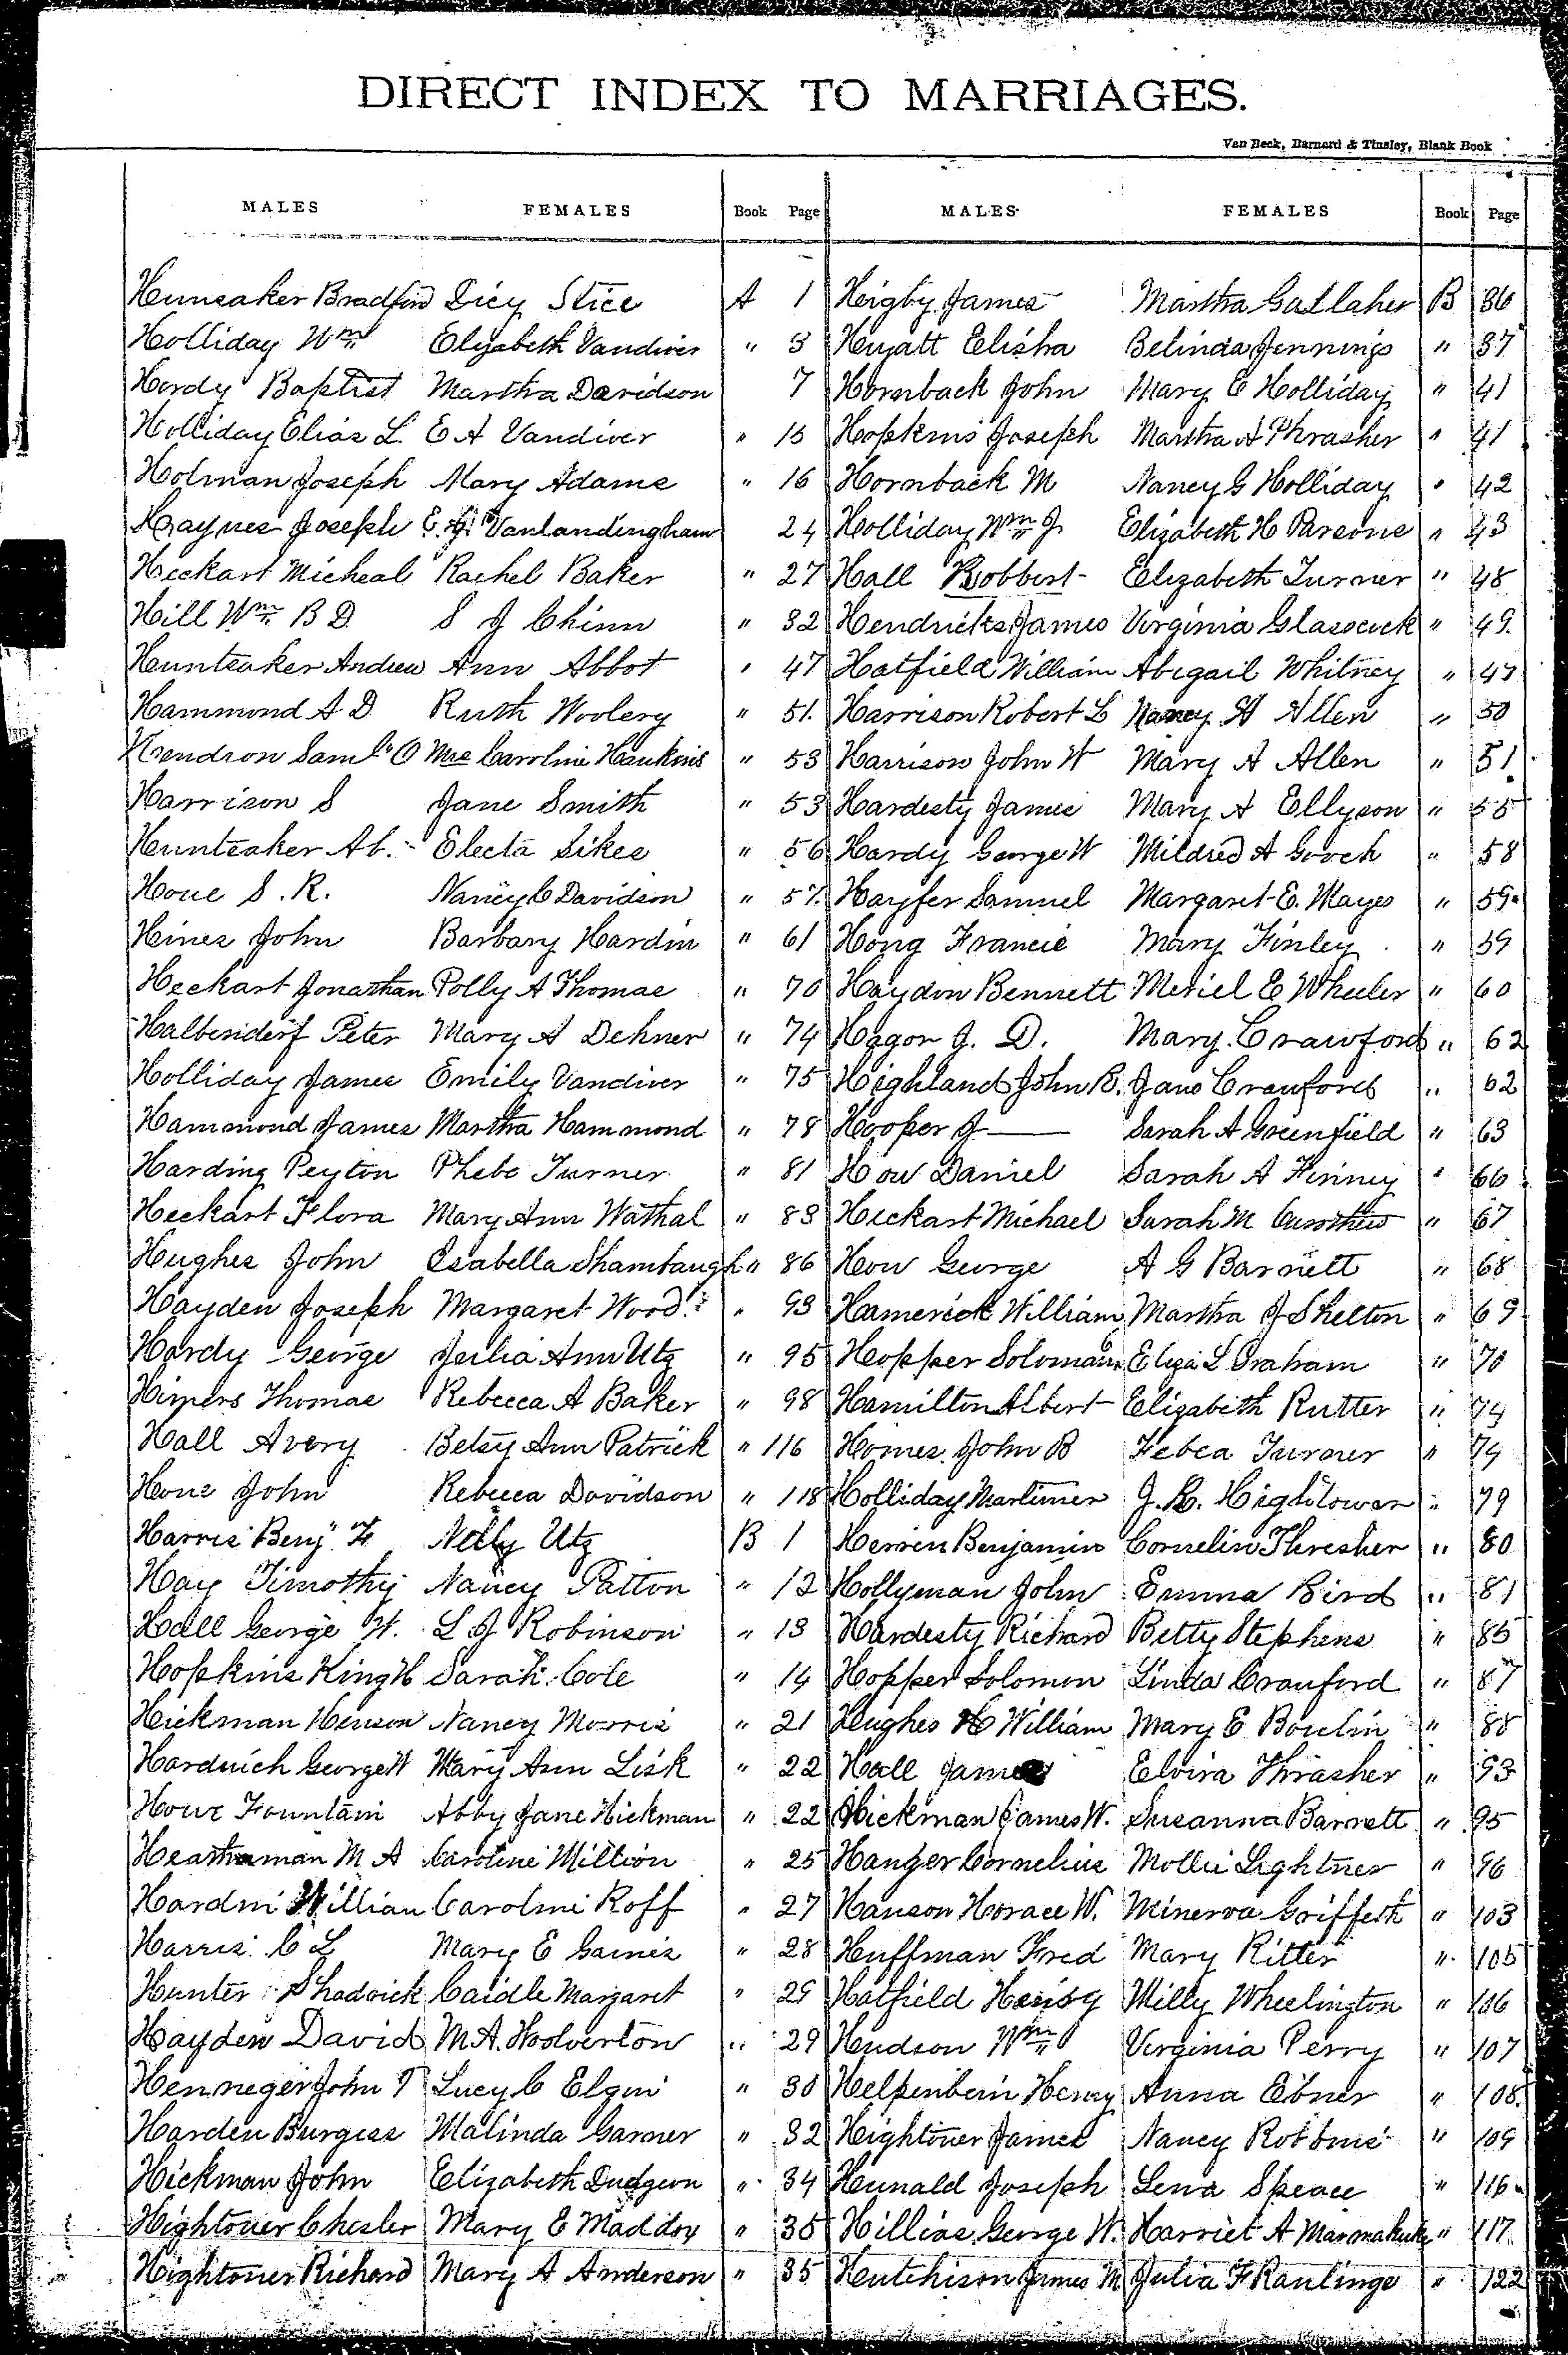 DIRECT INDEX TO MARRIAGES.
Van Beck, Barnard & Tinsley, Blank Book
MALES FEMALES Book Page MALES FEMALES Book Page
Hunsaker Bradford Dicy Stice A 1 Higby James Martha Gallaher B 36
Holliday Wm Elizabeth Vandiver " 3 Hyatt Elisha Belinda Jennings " 37
Hordy Baptist Martha Davidson 7 Hornback John Mary E Holliday " 41
Holliday Elias L. E A Vandiver " 15 Hopkins Joseph Martha A Phrasher " 41
Holman Joseph Mary Adams " 16 Hornback M Nancy G Holliday " 42
Haynes Joseph E. Vanlandingham 24 Holliday Wm J Elizabeth H Parsons " 43
Heckart Micheal Rachel Baker " 27 Hall Robbert Elizabeth Turner " 48
Hill Wm B D S J Chinn " 32 Hendricks James Virginia Glasscock " 49.
Huntsaker Andrew Ann Abbot " 47 Hatfield William Abigail Whitney " 49
Hammond A D Ruth Woolery " 51. Harrison Robert L Nancy A Allen " 50
Hendron Saml O Mrs Caroline Hankins " 53 Harrison John W Mary A Allen " 51
Harrison S Jane Smith " 53 Hardesty James Mary A Ellyson " 55
Huntsaker Ab. Electa Sikes " 56 Hardy George W Mildred A Gooch " 58
Houe S. R. Nancy C Davidson " 57. Hayfer Samuel Margaret E. Mayes " 59
Hines John Barbary Hardin " 61 Hong Francis Mary Finley " 59
Heckart Jonathan Polly A Thomas " 70 Haydon Bennett Meriel E Wheeler " 60
Halbendorf Peter Mary A Dehner " 74 Hagor J. D. Mary Crawford " 62
Holliday James Emily Vandiver " 75 Highland John B. Jane Crawford " 62
Hammond James Martha Hammond " 78 Hooper J — Sarah A Greenfield " 63
Harding Peyton Phebe Turner " 81 How Daniel Sarah A Finney " 66
Heckart Flora Mary Ann Wathal " 83 Heckart Michael Sarah M " 67
Hughes John Isabella Shambaugh " 86 How George A G Barnett " 68
Hayden Joseph Margaret Wood " 93 Hamerick William Martha J Shelton " 69
Hardy George Julia Ann Utz " 95 Hopper Soloman Eliza L Graham " 70
Himers Thomas Rebecca A Baker " 98 Hamilton Albert Elizabeth Rutter " 74
Hall Avery Betsy Ann Patrick " 116 Homes John B Febea Turner " 74
Houe John Rebecca Davidson " 118 Holliday Mortimer J. R. Hightower " 79
Harris Benj F Nelly Utz B 1 Herrin Benjamin Cornelia Thresher " 80
Hay Timothy Nancy Patton " 12 Hollyman John Emma Bird " 81
Hall George W. L J Robinson " 13 Hardesty Richard Betty Stephens " 85
Hopkins King H Sarah Cole " 14 Hopper Solomon Linda Crauford " 87
Hickman Henson Nancy Morris " 21 Hughes H William Mary E Boulin " 88
Harduich George W Mary Ann Lisk " 22 Hall James Elvira Thrasher " 93
Houe Fountain Abby Jane Hickman " 22 Hickman James W. Susanna Barnett " 95
Heathaman M A Caroline Million " 25 Hanger Cornelius Mollie Lightner " 96
Hardin William Caroline Roff " 27 Hanson Horace W. Minerva Griffeth " 103
Harris C L Mary E Gaines " 28 Huffman Fred Mary Ritter " 105
Hunter Shadrick Caidle Margaret " 29 Hatfield Henry Milly Wheelington " 106
Hayden David M. A. Woolverton " 29 Hudson Wm Virginia Perry " 107
Henneger John T Lucy C Elgin " 30 Helpenbein Henry Anna Ebner " 108.
Harden Burgess Malinda Garner " 32 Hightouer James Nancy Robbins " 109
Hickman John Elizabeth Dudgeon " 34 Hunald Joseph Lena Speace " 116
Hightouer Chesler Mary E Maddox " 35 Hillias George W. Harriet A " 117
Hightouer Richard Mary A Anderson " 35 Hutchison James M Julia F Raulings " 122